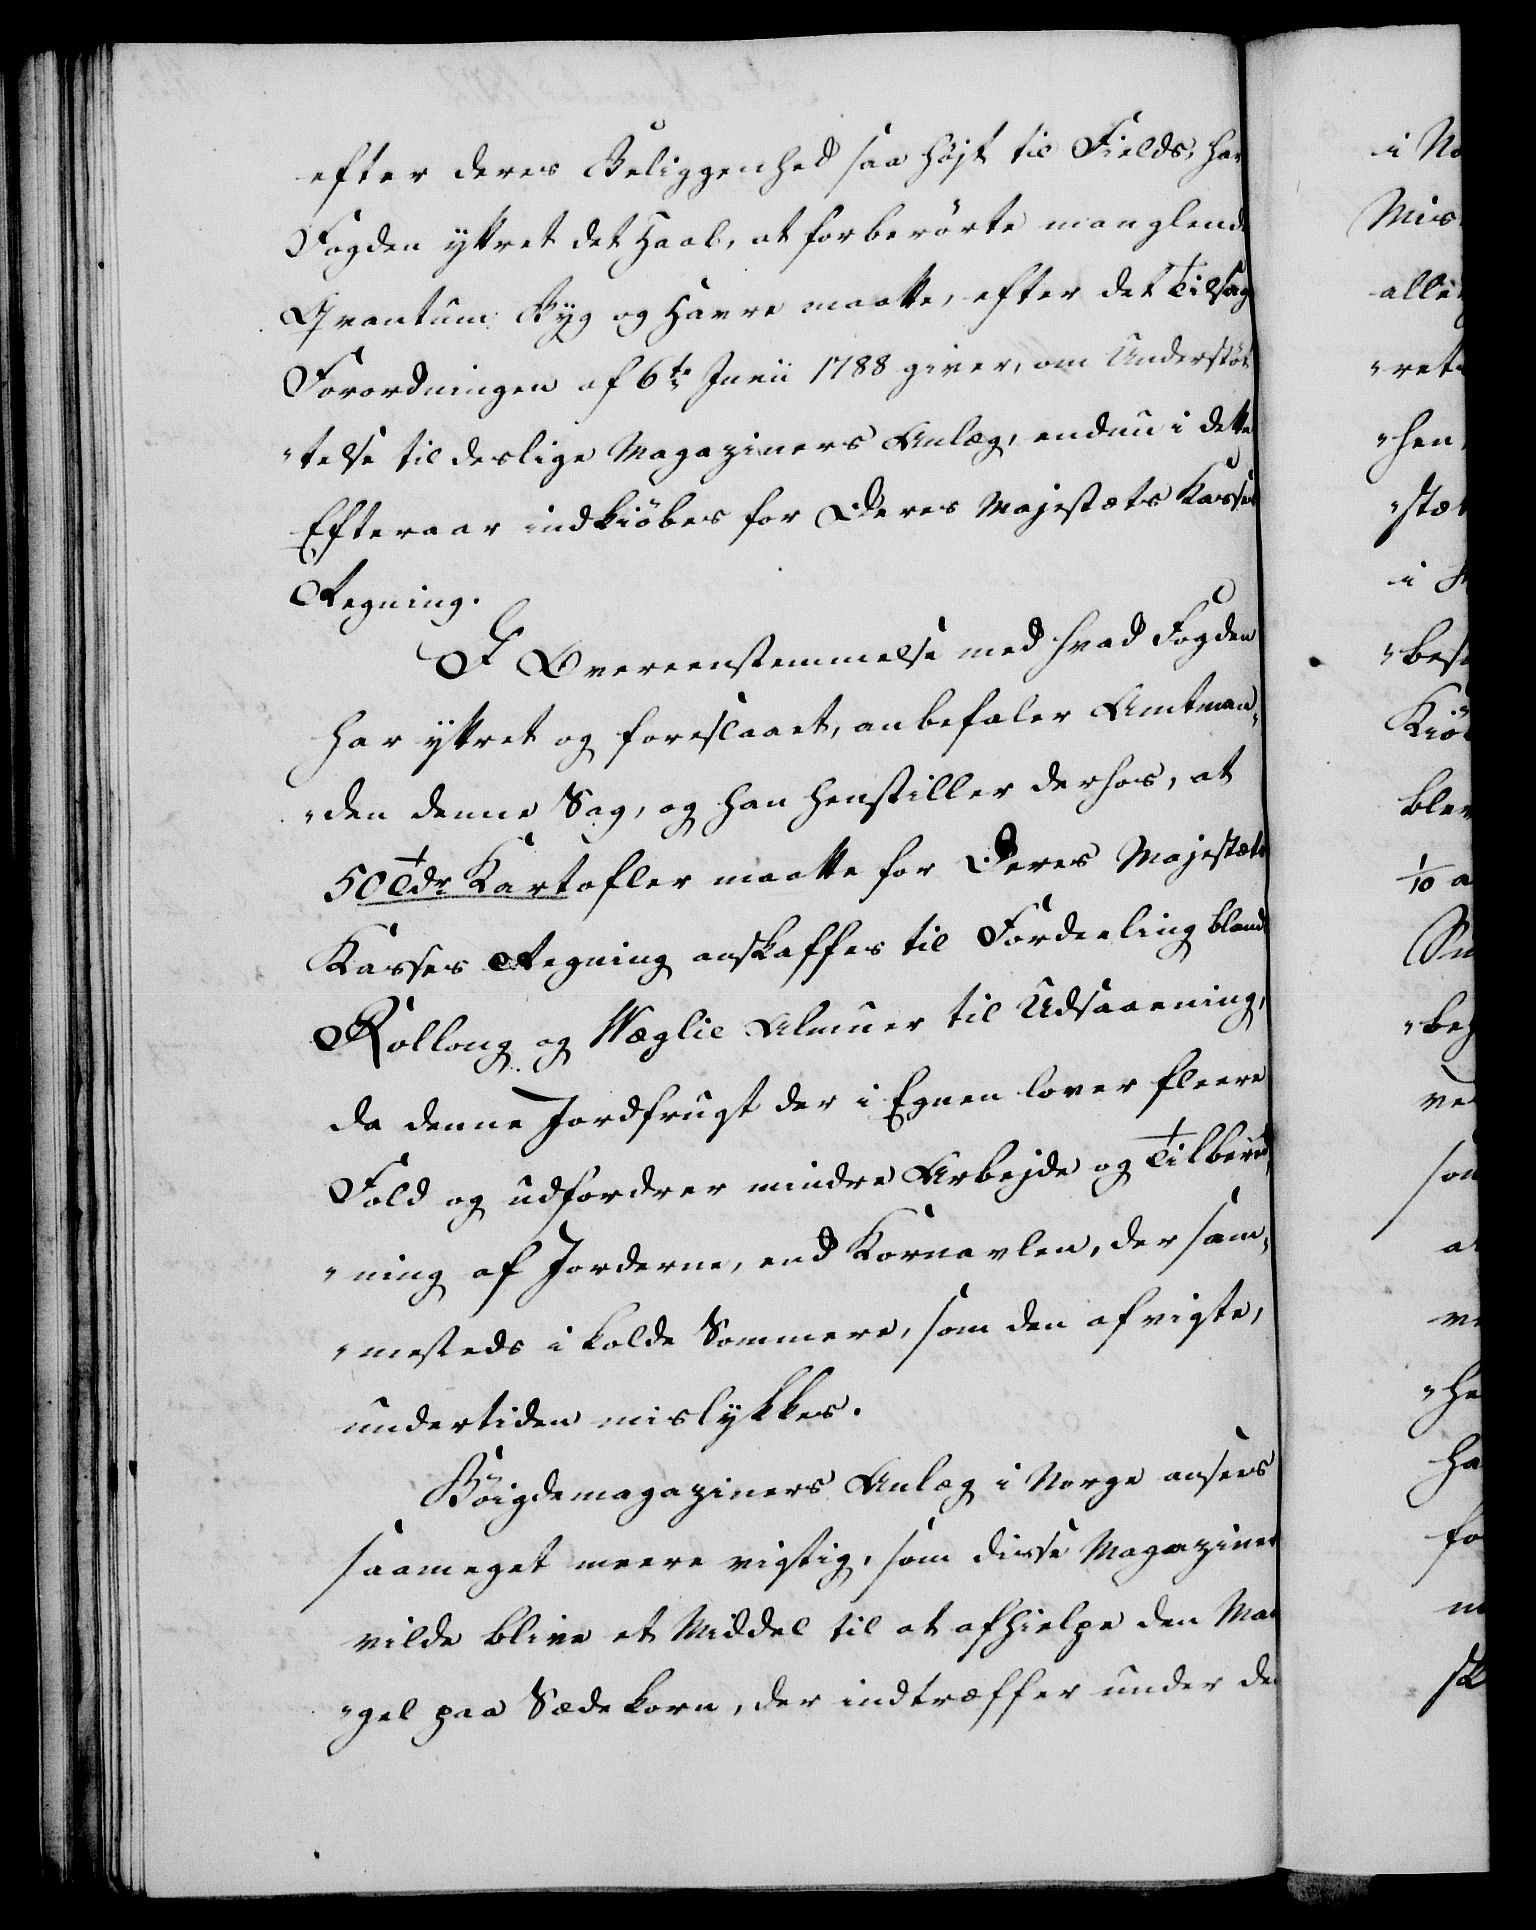 efter deres Beliggenhed saa højt til Fields, har
Fogden yttret det Haab, at forberørte manglende
Qvantum Byg og Havre maatte, efter det Tilsagn
Forordningen af 6te Junii 1788 giver, om Understøt
"telse til deslige Magaziners Anlæg, endnu i dette
Efteraar indkiøbes for Deres Majestæts Kasses
Regning.
I Overeenstemmelse med hvad Fogden
har yttret og foreslaaet, anbefaler Amtman„
"den denne Sag, og han henstiller derhos, at
50 Tdr Kartofler maatte for Deres Majestæts
Kasses Regning anskaffes til Fordeeling blandt
Rollong og Næglie Almuer til Udsaaening,
da denne Jordfrugt der i Egnen lover fleere
Fold og udfordrer mindre Arbejde og Tilbered„
"ning af Jorderne, end Kornavlen, der sam„
"mesteds i kolde Sommere, som den afvigte,
undertiden mislykkes.
Bøigdemagaziners Anlæg i Norge ansees
saameget meere vigtig, som disse Magaziner
vilde blive et Middel til at afhielpe den Man
"gel paa Sædekorn, der indtræffer under de